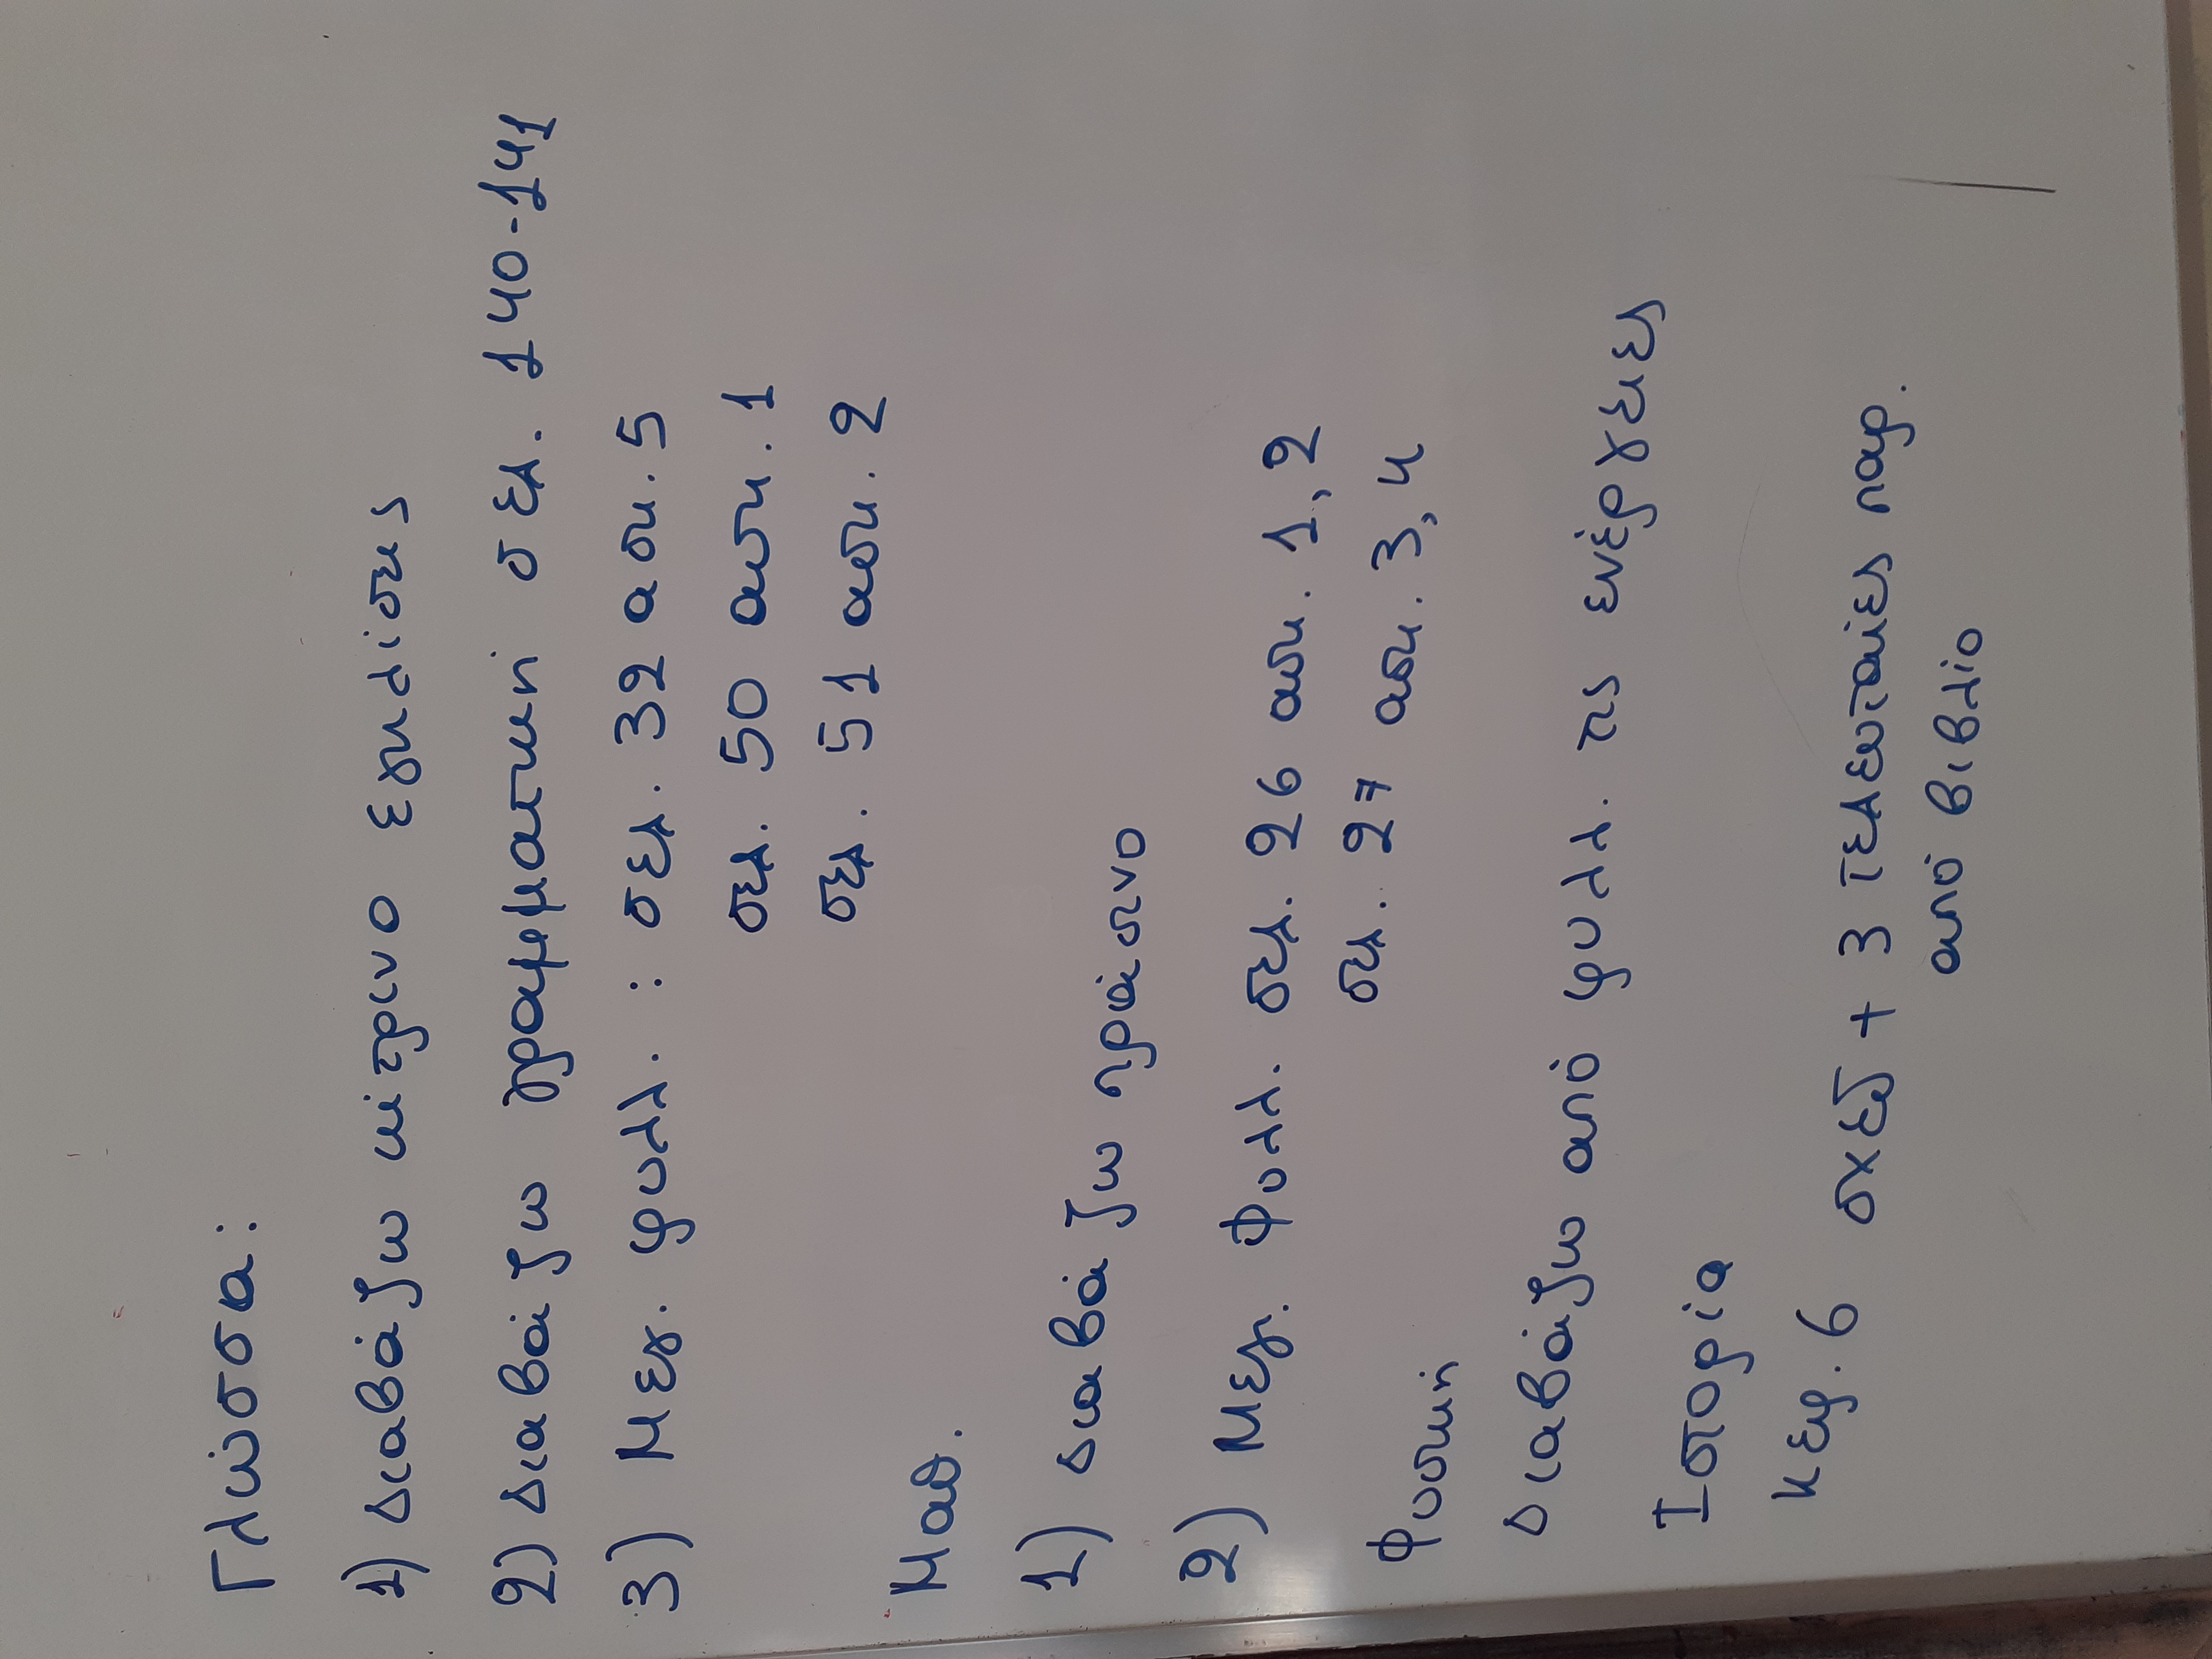 Γλώσσα:
1) Διαβάζω κίτρινο εγκλίσεις
2) Διαβάζω γραμματική σελ. 140-141
3) Μεγ. φυλλ. : σελ. 32 ασκ. 5
σελ. 50 ασκ. 1
σελ. 51 ασκ. 2
Μαθ.
1) Διαβάζω πράσινο
2) Μεγ. Φυλλ. σελ. 26 ασκ. 1,2
σελ. 27 ασκ. 3,4
Φυσική
Διαβάζω από φυλλ. τις ενέργειες
Ιστορία
Κεφ. 6 σχεδ + 3 τελευταίες παρ.
από βιβλίο